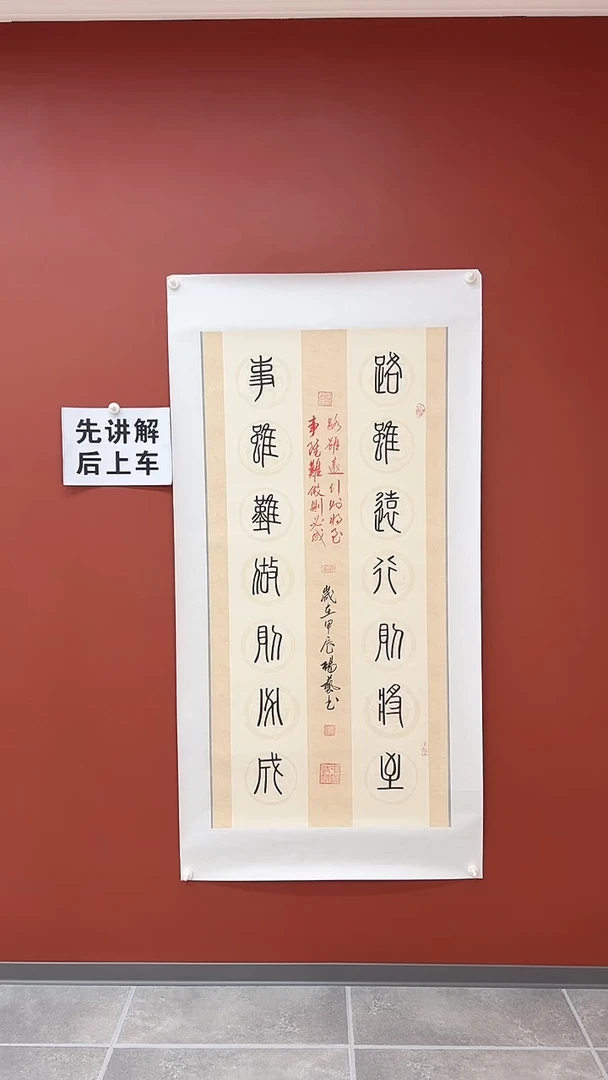 路雖遠行則將至
路雖遠行则将至
事虽難做则必成
歲在甲辰楊藝书
事雖難做則必成
先讲解
后上车